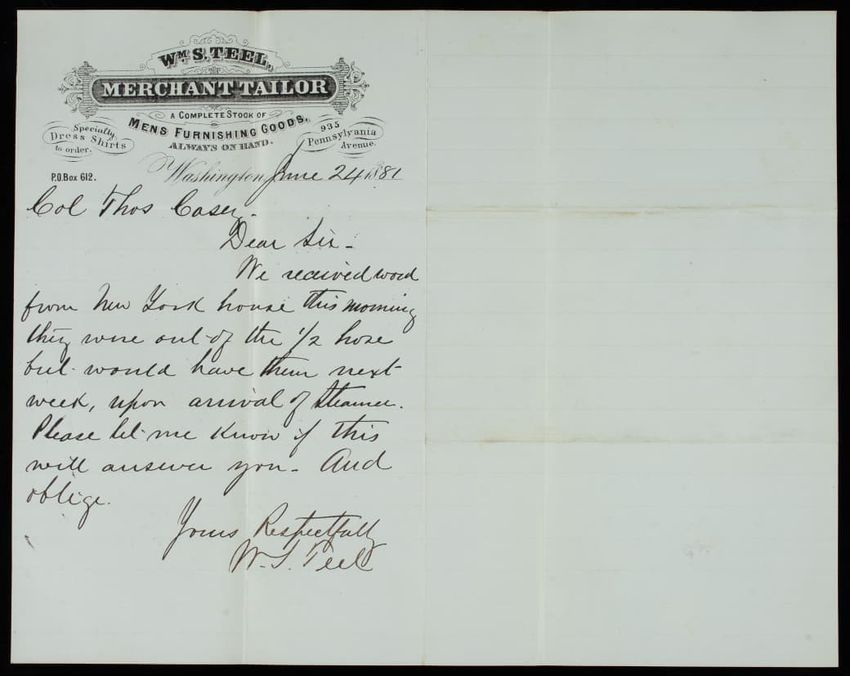 Wm S. TEEL,
MERCHANT TAILOR
A COMPLETE STOCK OF
MENS FURNISHING GOODS,
ALWAYS ON HAND.
Specialty
Dress Shirts
to order.
935
Pennsylvania
Avenue.
P.O. Box 612.
Washington, June 24 1881
Col Thos Casey.
Dear Sir -
We received word
from New York house this morning
they were out of the 1/2 hose
but would have them next
week, upon arrival of steamer.
Please let me know if this
will answer you - And
oblige.
Yours Respectfully
W. S. Teel